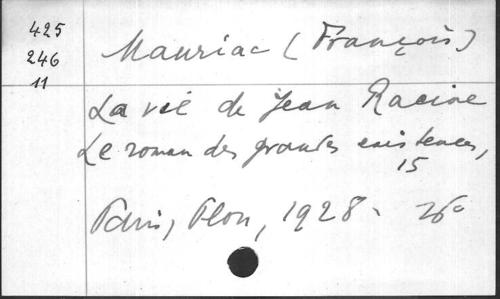 425
246
11
Mauriac (François)
La vie de Jean Racine
Le roman des grandes existences,
15
Paris, Plon, 1928.